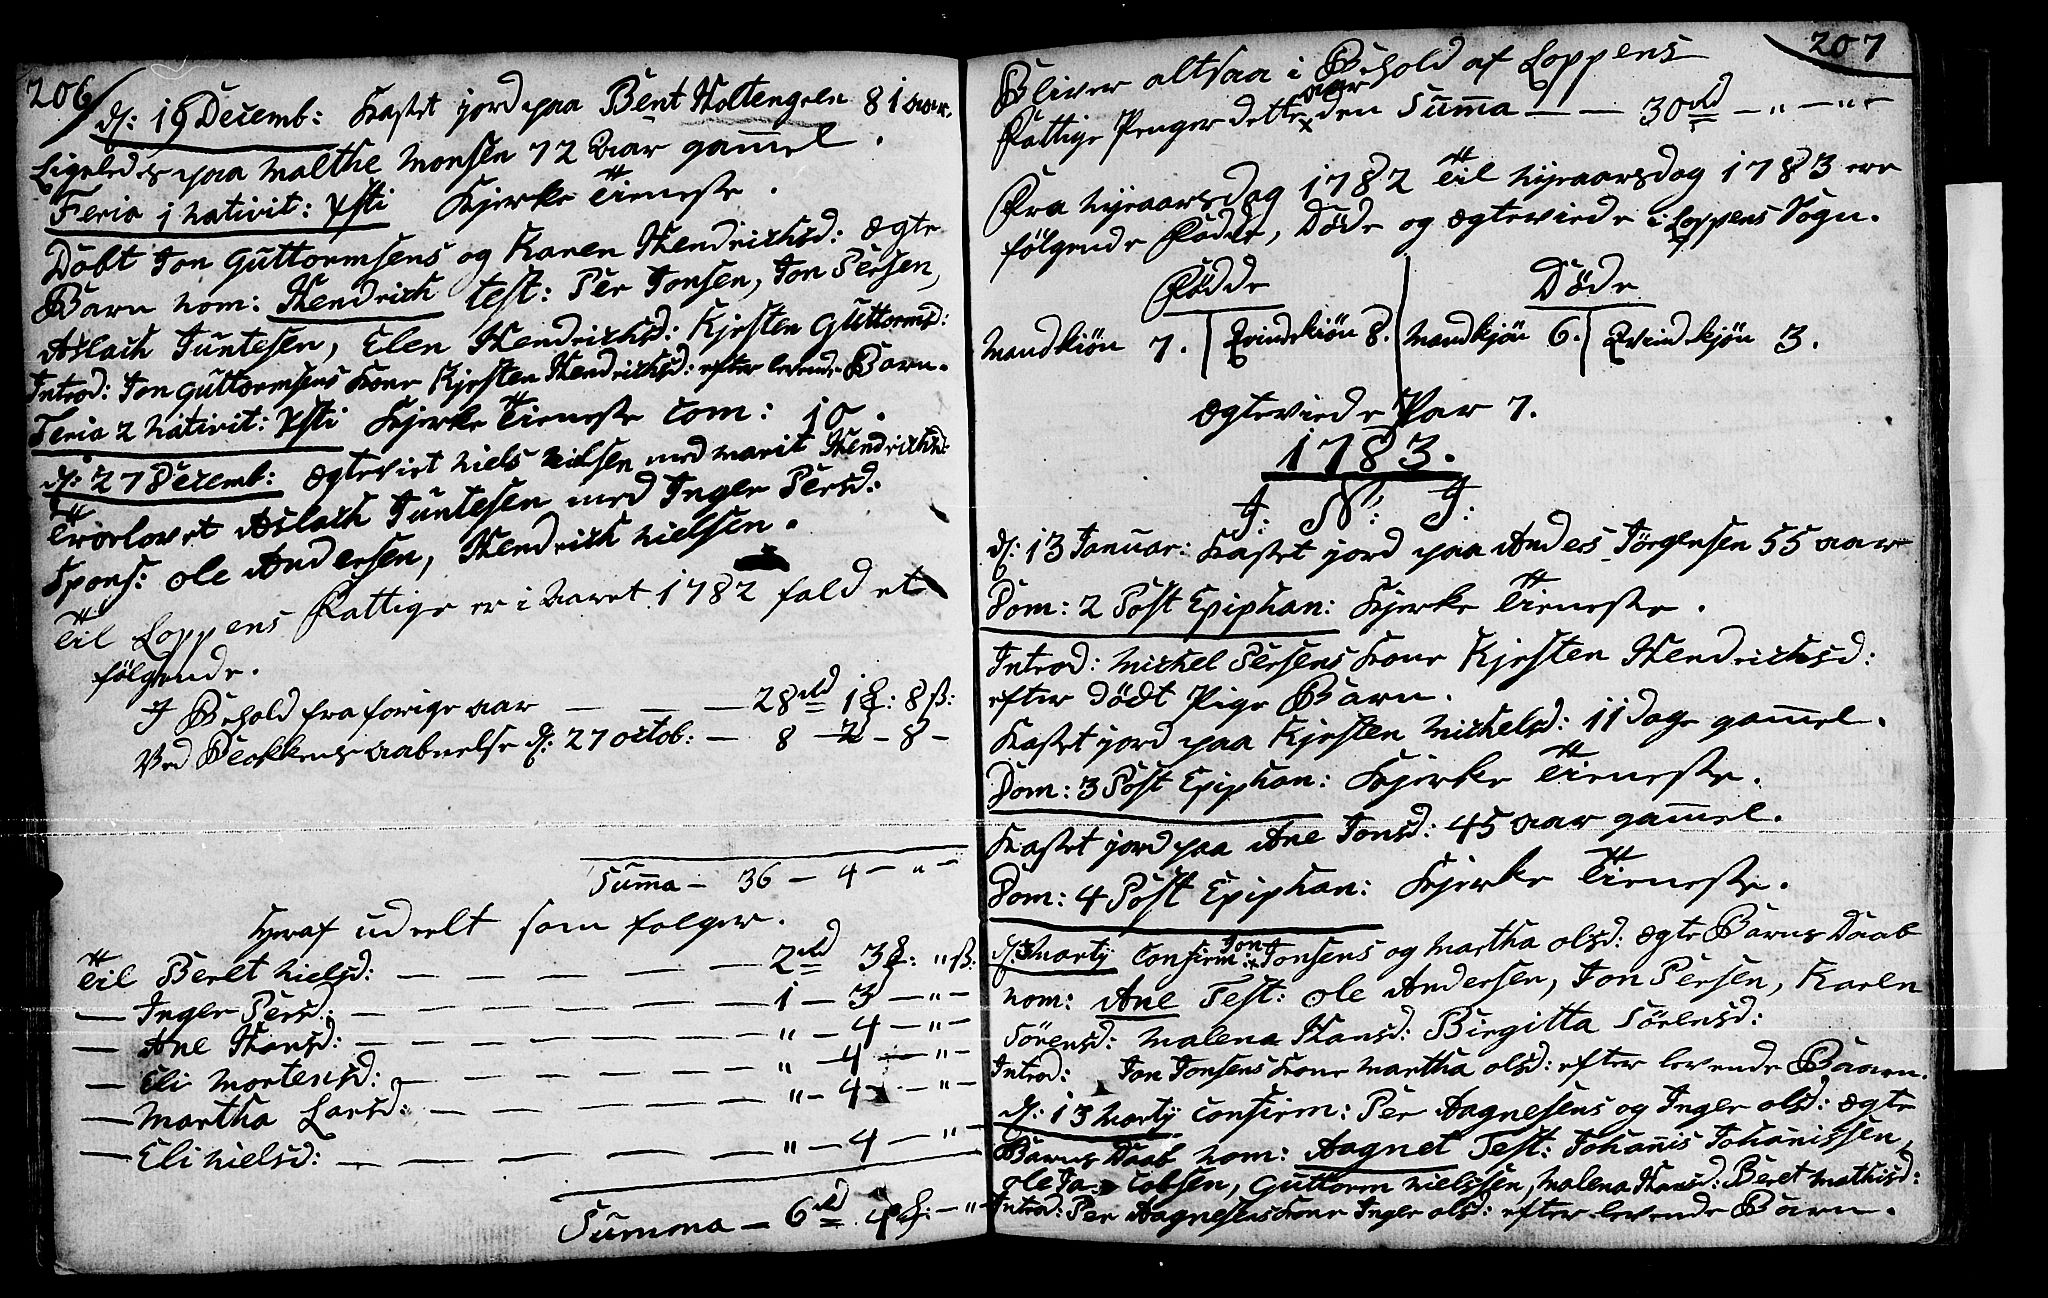 206
d: 19 Decemb: Kastet jord paa Bent Holtengeln 81 aar.
Ligeledes paa Malthe Monsen 72 Aar gam̄el.
Feria 1 Nativit: Xsti Kjerke Tieneste.
Döbt Jon Guttormsens og Karen Hendrichsd: Ægte
Barn nom: Hendrich test: Per Jonsen, Jon Persen,
Aslach Juntesen, Elen Hendrichsd: Kjesten Guttormsd:
Introd: Jon Guttormsens Kone Kjesten Hendrichsd: efter levende Barn.
Feria 2 Nativit: Xsti Kjerke Tieneste Com: 10.
d: 27 Decemb: Ægteviet Niels Nielsen med Marit Hendrichsd:
Trorlovet Aslach Juntesen med Inger Persd:
Spons: Ole Andersen, Hendrich Nielsen.
Til Loppens Fattige er i Aaret 1782 faldet
følgende.
I Behold fra forige Aar — — — 28 rd 1 f: 8 ß:
Ved Blokkens Aabnelse d: 27 octob: — 8 — 2 — 8 —
Sum̄a — 36 — 4 — " —
Heraf udeelt som folger.
Til Beret Nielsd: — — — — — 2 rd 3 f: " ß:
— Inger Persd: — — — — — 1 — 3 — " —
— Ane Hansd: — — — — — " — 4 — " —
— Eli Mortensd: — — — — — " — 4 — " —
— Martha Larsd: — — — — — " — 4 — " —
— Eli Nielsd: — — — — — " — 4 — " —
Summa — 6 rd 4 f: — " —
207
Bliver altsaa i Behold af Loppens
Fattige Penger dette aar den Sum̄a — — 30 rd — " — " —
Fra Nyeaarsdag 1782 Til Nyeaarsdag 1783 ere
følgende Fødde, Døde og Ægteviede i Loppens Sogn.
Fødde Döde
Mandkiön 7. Qvindekiön 8. Mandkjön 6. Qvindekjön 3.
Ægteviede Par 7.
1783.
I: N: J:
d: 13 Januar: Kastet jord paa Anders Jörgensen 55 aar
Dom: 2 Post Epiphan: Kjerke Tieneste.
Introd: Michel Persens Kone Kjesten Hendrichsd:
efter Dödt Pige Barn.
Kastet jord paa Kjesten Michelsd: 11 Dage gam̄el.
Dom: 3 Post Epiphan: Kjerke Tieneste.
Kastet jord paa Ane Jonsd: 45 Aar gam̄el.
Dom: 4 Post Epiphan: Kjerke Tieneste.
d: 3 Martij Confirm: Jon Jonsens og Martha Olsd: Ægte Barns Daab
nom: Ane Test: Ole Andersen, Jon Persen, Karen
Sörensd: Malena Hansd: Birgitta Sörensd:
Introd: Jon Jonsens Kone Martha Olsd: efter levende Barn.
d: 13 Martij Confirm: Per Aagnesens og Inger Olsd: Ægte
Barns Daab nom: Aagnet Test: Johan̄is Johan̄issen,
Ole Jacobsen, Guttorm Nielssen, Malena Hansd: Beret Mathisd:
Introd: Per Aagnesens Kone Inger Olsd: efter levende Barn.